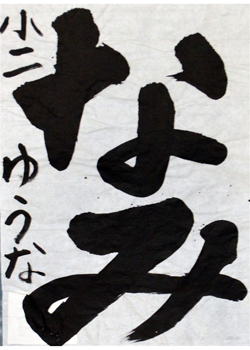 なみ
小二 ゆうな